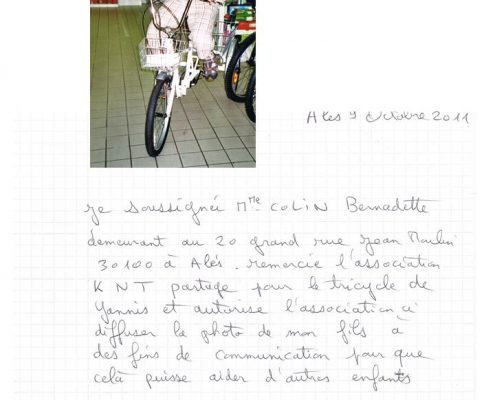 Alès 9 Octobre 2011
Je soussignée Mme COLIN Bernadette
demeurant au 20 grand rue Jean Moulin
30100 à Alès. remercie l'association
KNT partage pour le tricycle de
Yannis et autorise l'association à
diffuser la photo de mon fils à
des fins de communication pour que
celà puisse aider d'autres enfants